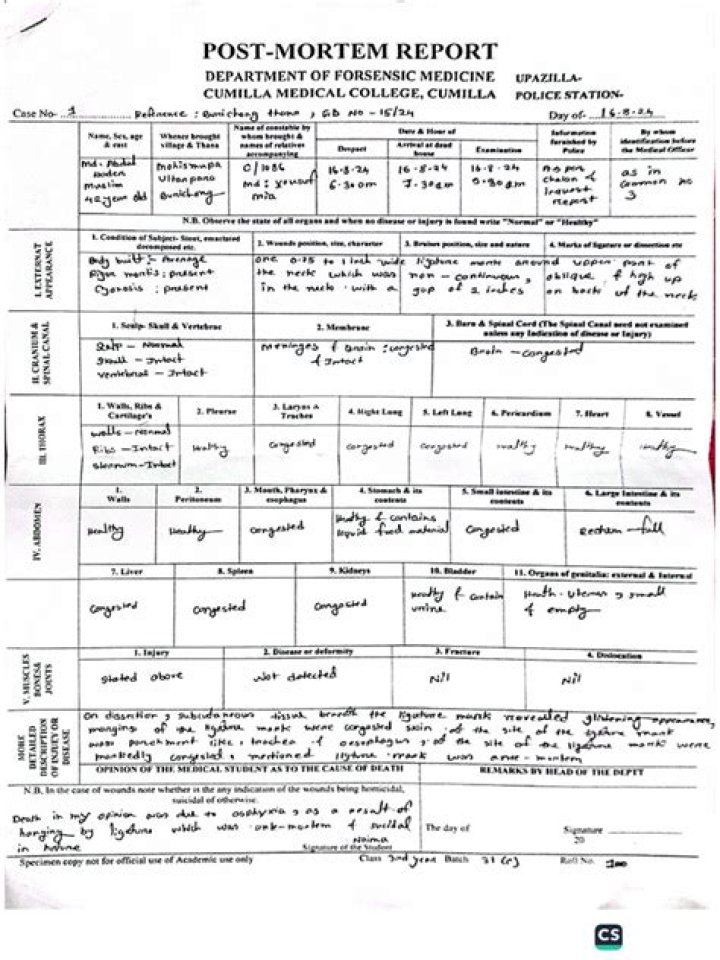 POST-MORTEM REPORT
DEPARTMENT OF FORSENSIC MEDICINE UPAZILLA-
CUMILLA MEDICAL COLLEGE, CUMILLA POLICE STATION-
Case No- 1 Reference : Burichang thana, GD NO - 15/24 Day of- 16-8-24
Name, Sex, age & cast
Whence brought village & Thana
Name of constable by whom brought & names of relatives accompanying
Date & Hour of
Despact
Arrival at dead house
Examination
Information furnished by Police
By whom identification before the Medical Officer
Md. Abdul
muslim
42 year old
Burichang
C/1086
Md: Yousuf
mia
16-8-24
6.30am
16-8-24
7.30am
16-8-24
As per
chalan &
inquest
report
as in
common no
3
N.B. Observe the state of all organs and when no disease or injury is found write "Normal" or "Healthy"
I. EXTERNAT APPEARANCE
1. Condition of Subject- Stout, emaciated decomposed etc.
2. Wounds position, size, character
3. Bruises position, size and nature
4. Marks of ligature or dissection etc
Body built :- Average
Rigor mortis : present
Cyanosis : present
one 0.75 to 1 inch wide ligature mark around upper part of
the neck which was non - continuous, oblique & high up
in the neck with a gap of 2 inches on back of the neck
II. CRANIUM & SPINAL CANAL
1. Sculp- Skull & Vertebrae
2. Membrane
3. Barn & Spinal Cord (The Spinal Canal need not examined unless any Indication of disease or Injury)
Sculp - Normal
Skull - Intact
vertebral - Intact
Meninges & Brain : congested
& Intact
Brain - congested
III. THORAX
1. Walls, Ribs & Cartilage's
2. Pleurae
3. Larynx & Traches
4. Right Lung
5. Left Lung
6. Pericardium
7. Heart
8. Vessel
walls - Normal
Ribs - Intact
sternum - Intact
Healthy
congested
congested
congested
Healthy
Healthy
Healthy
IV. ABDOMEN
1. Walls
2. Peritoneum
3. Mouth, Pharynx & esophagus
4. Stomach & its contents
5. Small intestine & its contents
6. Large Intestine & its contents
Healthy
Healthy
congested
Healthy & contains
liquid food material
congested
Rectum - full
7. Liver
8. Spleen
9. Kidneys
10. Bladder
11. Organs of genitalia: external & Internal
congested
congested
congested
Healthy & contain
urine
Health - Uterus, small
& empty
V. MUSCLES BONES & JOINTS
1. Injury
2. Disease or deformity
3. Fracture
4. Dislocation
Stated above
Not detected
Nil
Nil
MORE DETAILED DESCRIPTION OF INJUEY OR DISEASE
On dissection, subcutaneous tissue beneath the ligature mark revealed glistening appearance,
margins of the ligature mark were congested skin at the site of the ligature mark
was parchment like, trachea & oesophagus, at the site of the ligature mark were
markedly congested, mentioned ligature mark was ante-mortem
OPINION OF THE MEDICAL STUDENT AS TO THE CAUSE OF DEATH
REMARKS BY HEAD OF THE DEPTT
N.B. In the case of wounds note whether is the any indication of the wounds being homicidal, suicidal of otherwise.
Death in my opinion was due to asphyxia, as a result of
hanging by ligature which was ante-mortem & suicidal
in nature
Naima
Signature of the Student
The day of
Signature
20
Specimen copy not for official use of Academic use only Class 3rd year Batch 31 Roll No. 100
CS